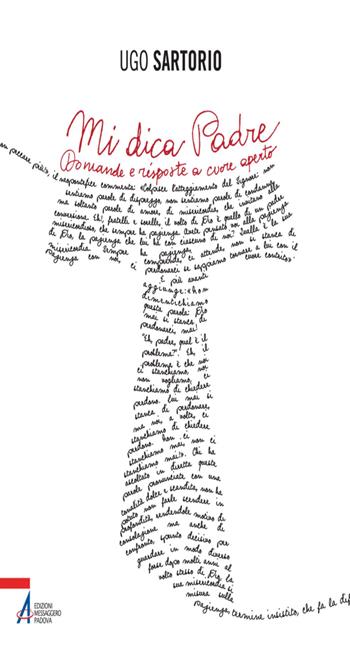 UGO SARTORIO
Mi dica Padre
Domande e risposte a cuore aperto
peccare più», il neopontefice commenta: «Colpisce l'atteggiamento del Signore: non
sentiamo parole di disprezzo, non sentiamo parole di condanna,
ma soltanto parole di amore, di misericordia, che invitano alla
conversione. Eh, fratelli e sorelle, il volto di Dio è quello di un padre
misericordioso, che sempre ha pazienza. Avete pensato voi alla pazienza
di Dio, la pazienza che lui ha con ciascuno di noi? Quella è la sua
misericordia. Sempre ha pazienza,
pazienza con noi, ci comprende, ci attende, non si stanca di
perdonarci se sappiamo tornare a lui con il
cuore contrito».
E più avanti
aggiunge: «Non
dimentichiamo
questa parola: Dio
mai si stanca di
perdonarci, mai!
"Eh, padre, qual è il
problema?". Eh, il
problema è che noi
ci stanchiamo, noi
non vogliamo, ci
stanchiamo di chiedere
perdono. Lui mai si
stanca di perdonare,
ma noi, a volte, ci
stanchiamo di chiedere
perdono. Non ci
stanchiamo mai, non ci
stanchiamo mai!». Chi ha
ascoltato in diretta queste
parole pronunciate con una
tonalità dolce e scandita, non ha
potuto non farle scendere in
profondità, rendendole motivo di
consolazione ma anche di
confronto, spunto decisivo per
guardare in modo diverso
forse dopo molti anni al
volto stesso di Dio. La
sua misericordia si
misura sulla
pazienza, termine insistito, che fa la dif
EDIZIONI
MESSAGGERO
PADOVA